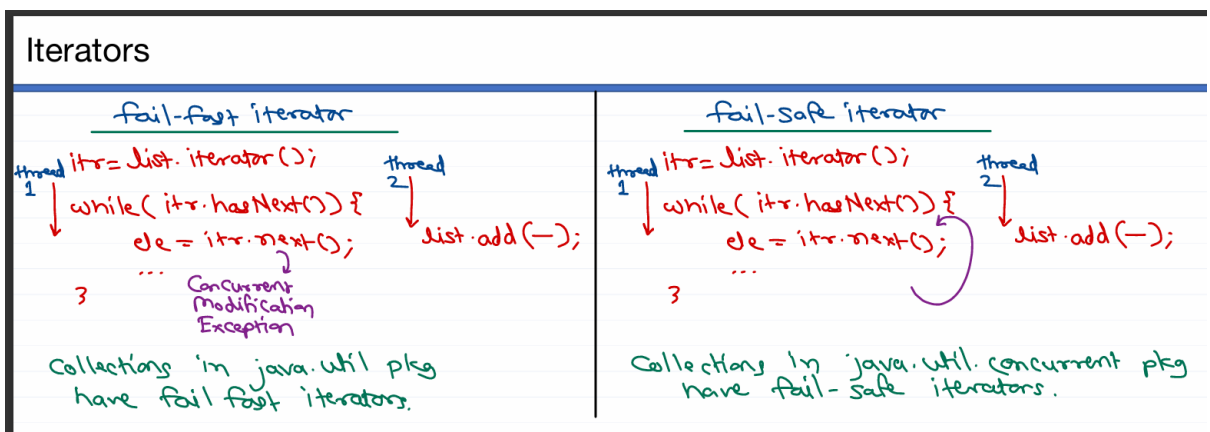 Iterators
fail-fast iterator
thread
1
itr= list.iterator();
while( itr.hasNext()) {
ele = itr.next();
...
}
Concurrent
Modification
Exception
thread
2
list.add(—);
Collections in java.util pkg
have fail fast iterators.
fail-safe iterator
thread
1
itr= list.iterator();
while( itr.hasNext()) {
ele = itr.next();
...
}
thread
2
list.add(—);
Collections in java.util.concurrent pkg
have fail-safe iterators.